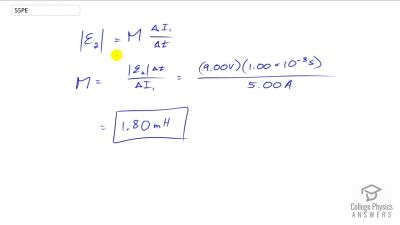 55PE
|ε₂| = M ΔI₁/Δt
M = |ε₂|Δt/ΔI₁ = (9.00V)(1.00×10⁻³s)/5.00A
= 1.80mH
College Physics
ANSWERS